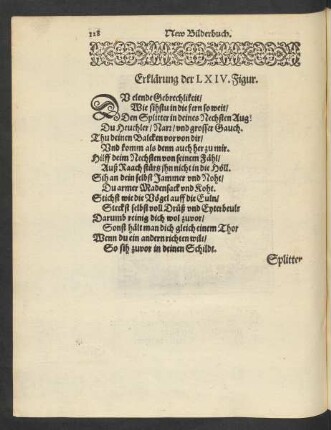 118 New Bilderbuch.
Erklärung der LXIV. Figur.
DV elende Gebrechlikeit/
Wie sihstu in die fern so weit/
Den Splitter in deines Nechsten Aug!
Du Heuchler/ Narr/ vnd grosser Gauch.
Thu deinen Balcken vor von dir/
Vnd komm als denn auch her zu mir.
Hilff deim Nechsten von seinem Fähl/
Auß Raach stürtz jhn nicht in die Höll.
Sih an dein selbst Jammer vnd Noht/
Du armer Madensack vnd Koht.
Stichst wie die Vögel auff die Euln/
Steckst selbst voll Drüß vnd Eyterbeuln
Darumb reinig dich wol zuvor/
Sonst hält man dich gleich einem Thor
Wenn du ein andern richten wilt/
So sih zuvor in deinen Schildt.
Splitter